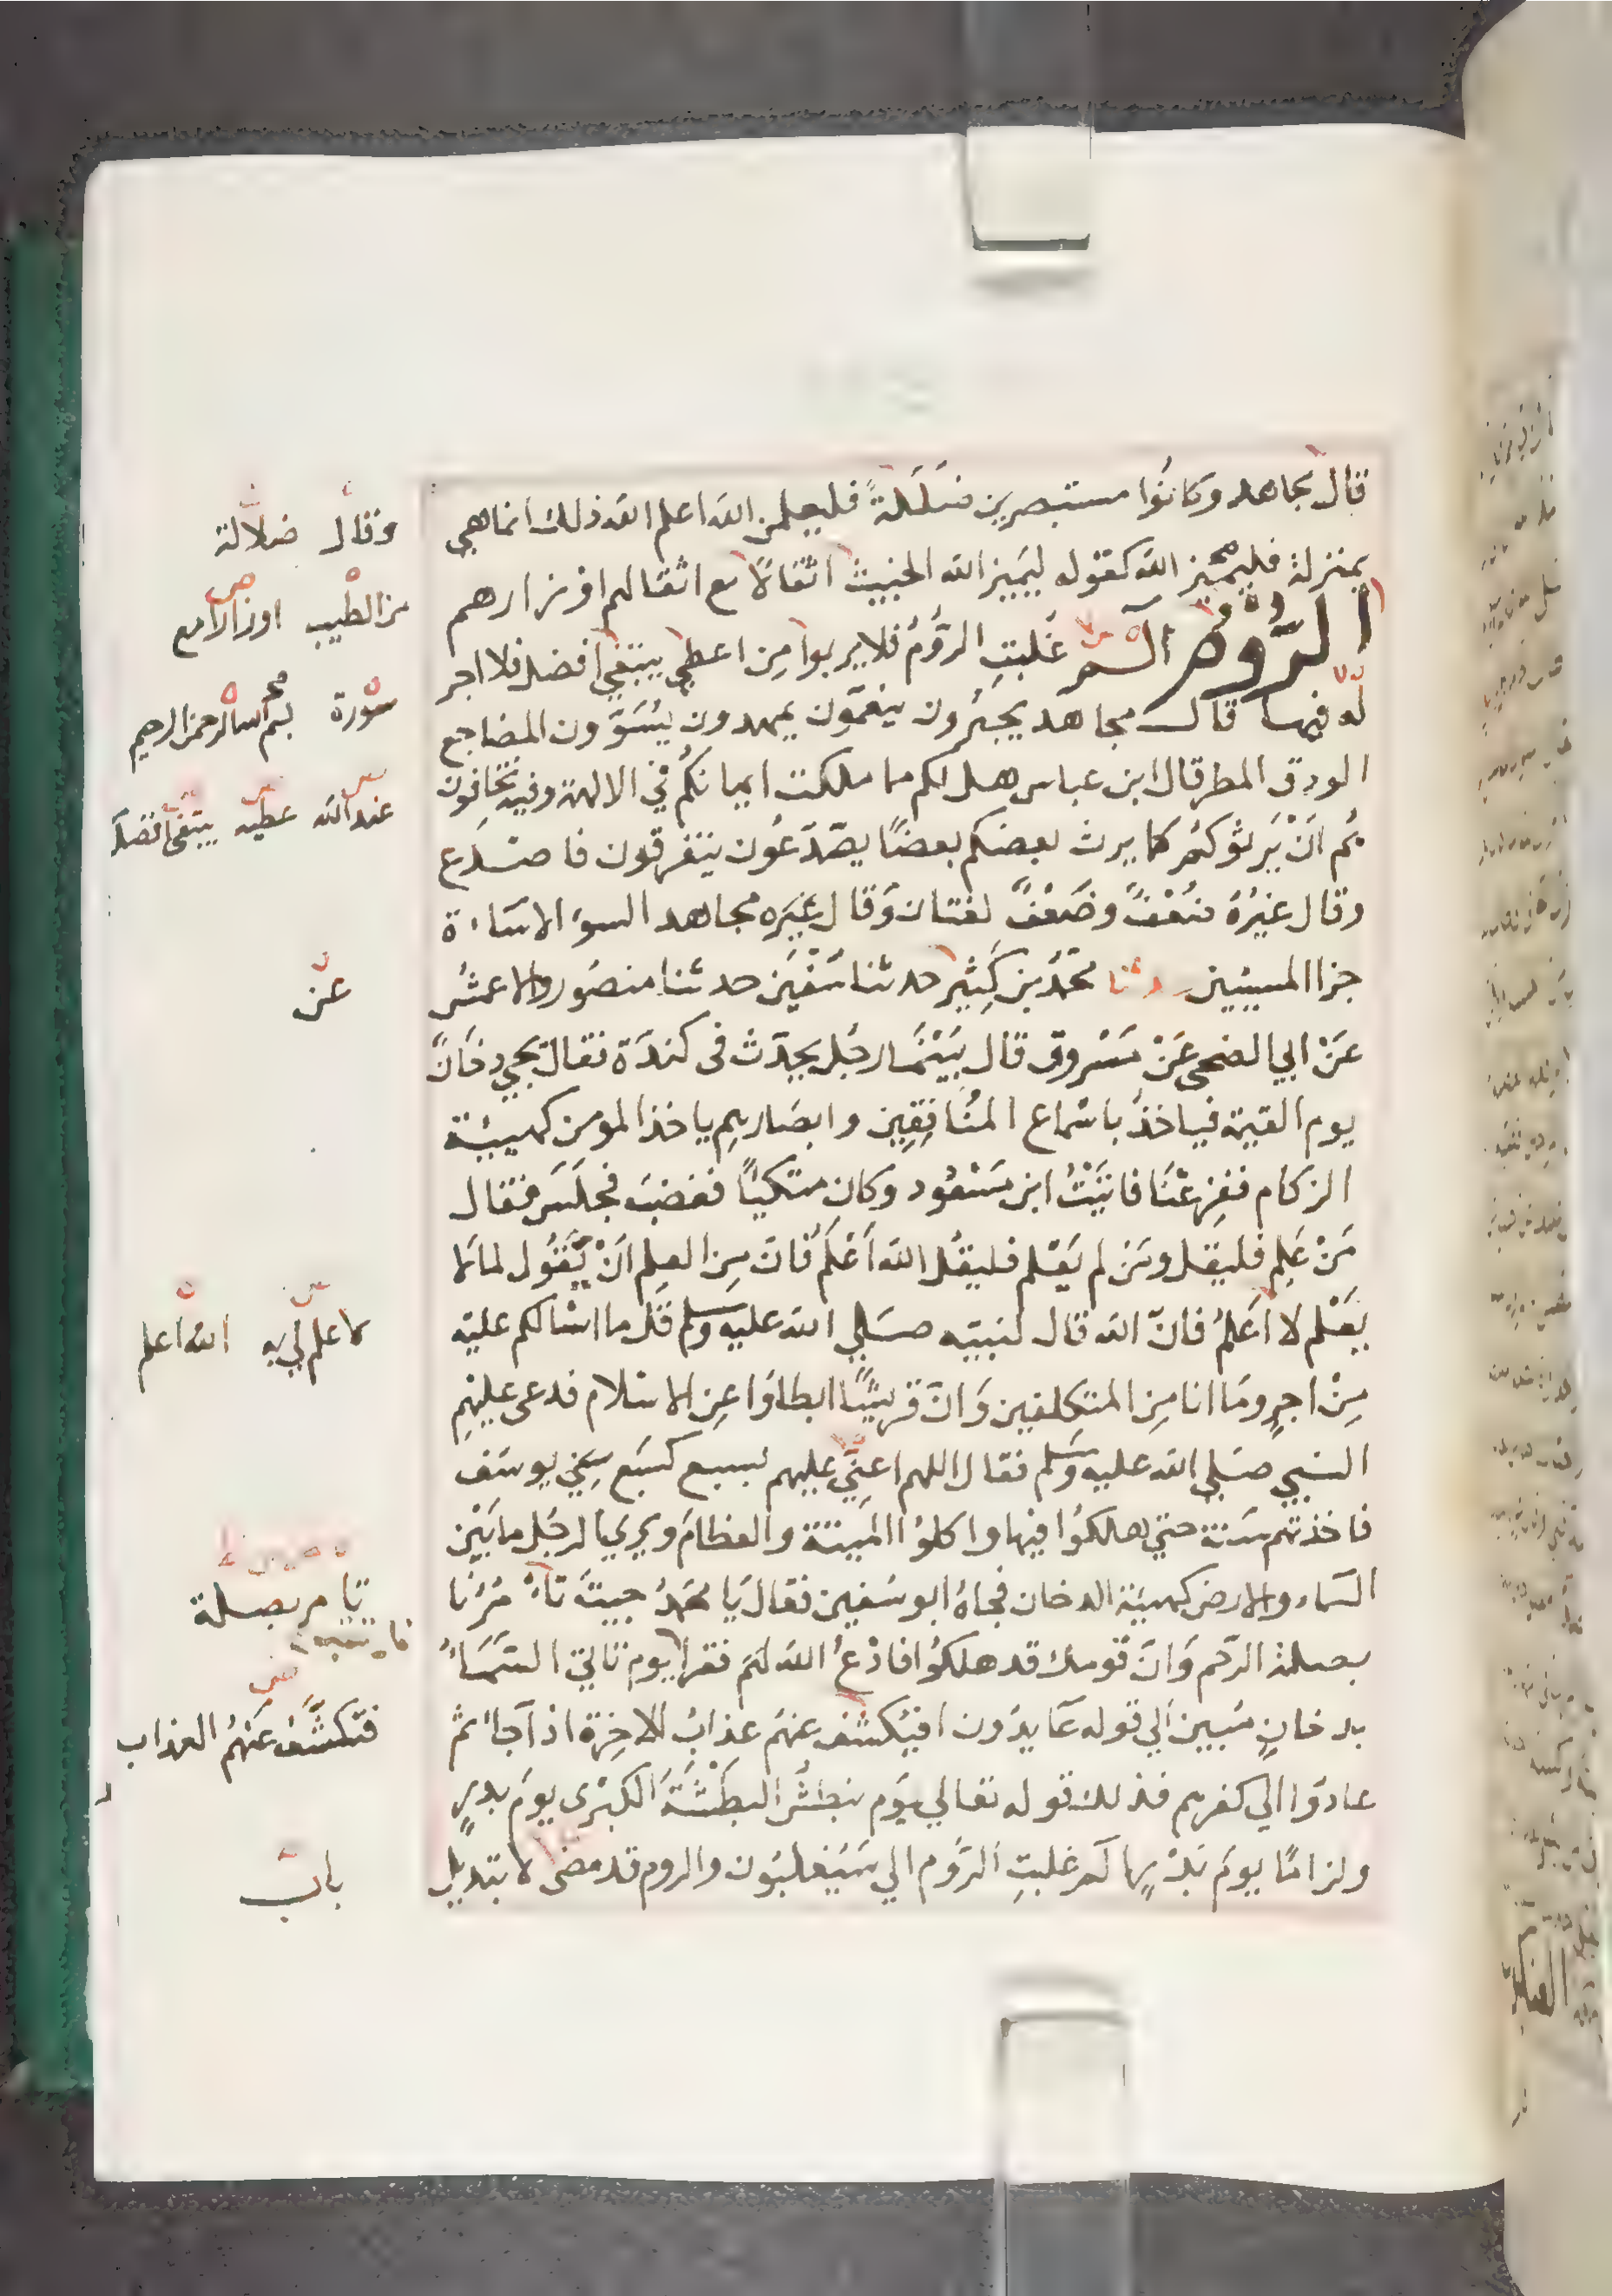 قال مجاهد وكانُوا مستبصرين ضَلَلَةً فليعلمن الله اعلم الله ذلك انما هي
بمنزلة فليميّز الله كقوله ليَميز الله الخبيث اثقالًا مع اثقالهم اوزارهم
الرُّوْم الٓمٓ غُلبتِ الرّوُمُ فلا يربوا مِن اعطى يبتغي افضل فلا اجر
لَه فيها قال مجاهد يحبَرُون ينعّمون يمهدون يُسَوّون المضاجع
الودق المطر قال ابن عباس هل لكم مما ملكت ايمانكُم في الالهة وفيه تخافون
هُم اَنْ يَرِثوكُم كما يرث بعضكم بعضًا يصّدّعُون يتفرقون فاصْدَع
وقال غيرُهُ ضُعْفٌ وضَعْفٌ لغتان وَقال غيرَه مجاهد السوٓ الاسَاءة
جزا المسيئين حدثنا محمّدُ بن كَثِير حدثنا سُفْيَن حدثنا منصُور والاعمشُ
عَنْ ابي الضحى عَنْ مَسْروق قال بَيْنَمَا رجُل يحدّث فى كندَة فقال يجي دخَانٌ
يوم القيمة فياخذُ باسْماع المُنَافِقِين وابصَارهِم ياخذ المومن كهيئة
الزكام ففزِعْنَا فاتَيْتُ ابن مَسْعُود وكان متكيًا فغضبَ فجلَسَ فقال
مَنْ عَلِم فليقل ومَن لم يَعْلم فليقُل الله اَعْلَمُ فانّ مِن العلم اَنْ يَّقُول لما لا
يَعْلم لا اَعلمُ فانّ الله قال لنبيّه صَلي الله عليه وسلم قل ما اسْالكم عليه
مِنْ اجرٍ ومَا انا مِن المتكلفين وَانّ قريشًا ابطاوا عن الاسْلام فدعى عليهم
النبي صَلي الله عليه وسلم فقال اللهم اعنِّي عليهم بسبع كسَبع سِني يوسَف
فاخذتهم سَنة حتي هلكوُا فيها واكلوُا الميتة والعظامَ ويري الرجُل ما بَيْن
السّماء والارض كهيئة الدخان فجاهُ ابو سُفين فقال يَا محَمدُ جيتَ تامُرُنا
بصلة الرّحم وَانّ قومك قد هلكوُا فادْعُ الله لهَم فقرا يوم تاتي السَّمَاءُ
بدخانٍ مُبين اَلي قوله عَآيدُون افيُكشف عنهم عذابُ الاخِرة اذا جآء ثم
عادوَا الي كفرهم فذلك قوله تعالي يَوَم نبطشُ البَطْشَةَ الكبْرى يومَ بدرٍ
ولزامًا يومَ بَدْرٍ الٓم غلبتِ الرَّوم الي سَيَغلبُون والروم قد مضى لا تبديل
وَقال ضلالة
من الطيب اوزارا مع
سورة بسم الله الرحمن الرحيم
عند الله عطيه يبتغى افضلَ
عن
لا علم لي به الله اعلم
تا مر بصلة
فَتكْشَّفُ عَنْهُمُ العذاب
باب